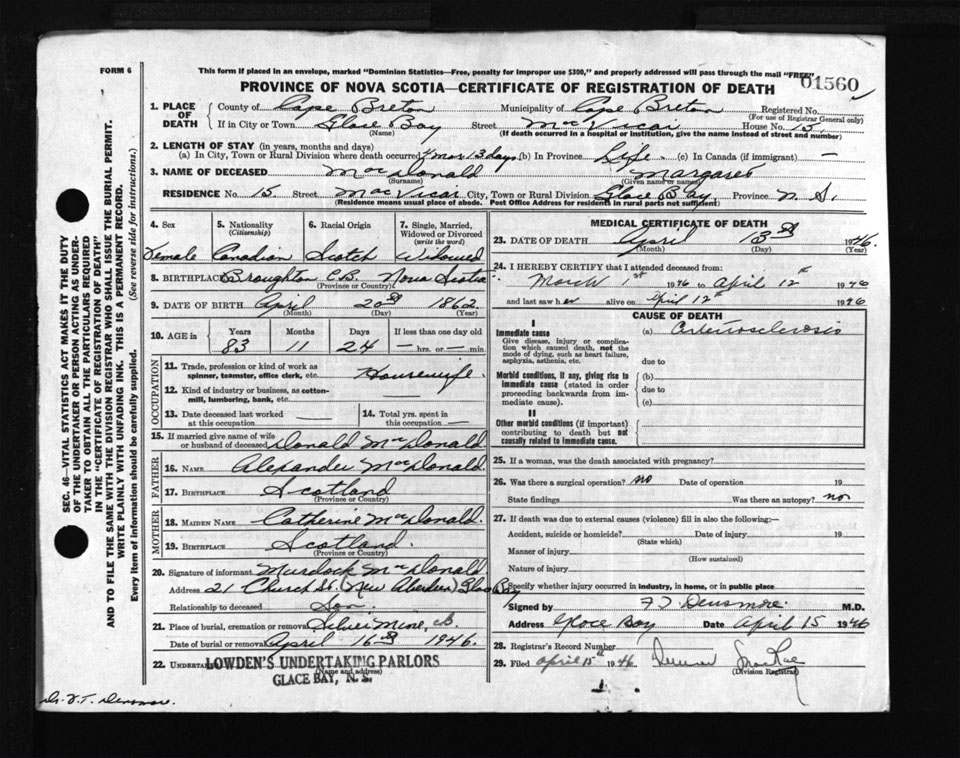 FORM 6
This form if placed in an envelope, marked "Dominion Statistics—Free, penalty for improper use $300," and properly addressed will pass through the mail "FREE"
01560
PROVINCE OF NOVA SCOTIA—CERTIFICATE OF REGISTRATION OF DEATH
1. PLACE OF DEATH County of Cape Breton Municipality of Cape Breton Registered No.
(For use of Registrar General only)
If in City or Town Glace Bay Street MacVicar House No. 15.
(Name) (If death occurred in a hospital or institution, give the name instead of street and number)
2. LENGTH OF STAY (in years, months and days)
(a) In City, Town or Rural Division where death occurred 4 mos 13 days (b) In Province Life (c) In Canada (if immigrant) —
3. NAME OF DECEASED MacDonald Margaret
(Surname) (Given name or names)
RESIDENCE No. 15. Street MacVicar City, Town or Rural Division Glace Bay, Province N.S.
(Residence means usual place of abode. Post Office Address for residents in rural parts not sufficient)
4. Sex 5. Nationality (Citizenship) 6. Racial Origin 7. Single, Married, Widowed or Divorced (write the word)
Female Canadian Scotch Widowed
8. BIRTHPLACE Broughton C.B. Nova Scotia
(Province or Country)
9. DATE OF BIRTH April 20th 1862
(Month) (Day) (Year)
10. AGE in Years Months Days If less than one day old
83 11 24 — hrs. or — min
OCCUPATION
11. Trade, profession or kind of work as spinner, teamster, office clerk, etc. Housewife
12. Kind of industry or business, as cotton-mill, lumbering, bank, etc.
13. Date deceased last worked at this occupation —
14. Total yrs. spent in this occupation —
15. If married give name of wife or husband of deceased Donald MacDonald
FATHER
16. NAME Alexander MacDonald
17. BIRTHPLACE Scotland
(Province or Country)
MOTHER
18. MAIDEN NAME Catherine MacDonald.
19. BIRTHPLACE Scotland.
(Province or Country)
20. Signature of informant Murdock MacDonald
Address 21 Church St. (New Aberdeen) Glace Bay
Relationship to deceased Son.
21. Place of burial, cremation or removal Silver Mine, C.B.
Date of burial or removal April 16th 1946.
22. UNDERTAKER LOWDEN'S UNDERTAKING PARLORS
(Name and address)
GLACE BAY, N. S.
MEDICAL CERTIFICATE OF DEATH
23. DATE OF DEATH April 13th 1946.
(Month) (Day)
24. I HEREBY CERTIFY that I attended deceased from:
March 1st 1946 to April 12th 1946
and last saw her alive on April 12th 1946
CAUSE OF DEATH
I
Immediate cause (a) Arteriosclerosis
Give disease, injury or complication which caused death, not the mode of dying, such as heart failure, asphyxia, asthenia, etc.
due to
Morbid conditions, if any, giving rise to immediate cause (stated in order proceeding backwards from immediate cause).
(b)
due to
(c)
II
Other morbid conditions (if important) contributing to death but not causally related to immediate cause.
25. If a woman, was the death associated with pregnancy?
26. Was there a surgical operation? no Date of operation 19
State findings Was there an autopsy? no
27. If death was due to external causes (violence) fill in also the following:—
Accident, suicide or homicide? Date of injury 19
(State which)
Manner of injury
(How sustained)
Nature of injury
Specify whether injury occurred in industry, in home, or in public place
Signed by F T Densmore. M.D.
Address Glace Bay Date April 15 1946
28. Registrar's Record Number
29. Filed April 15th 1946
(Division Registrar)
SEC. 46—VITAL STATISTICS ACT MAKES IT THE DUTY
OF THE UNDERTAKER OR PERSON ACTING AS UNDERTAKER TO OBTAIN ALL THE PARTICULARS REQUIRED
IN THE "CERTIFICATE OF REGISTRATION OF DEATH"
AND TO FILE THE SAME WITH THE DIVISION REGISTRAR WHO SHALL ISSUE THE BURIAL PERMIT.
WRITE PLAINLY WITH UNFADING INK. THIS IS A PERMANENT RECORD.
Every item of information should be carefully supplied. (See reverse side for instructions.)
Dr. F.T. Densmore.